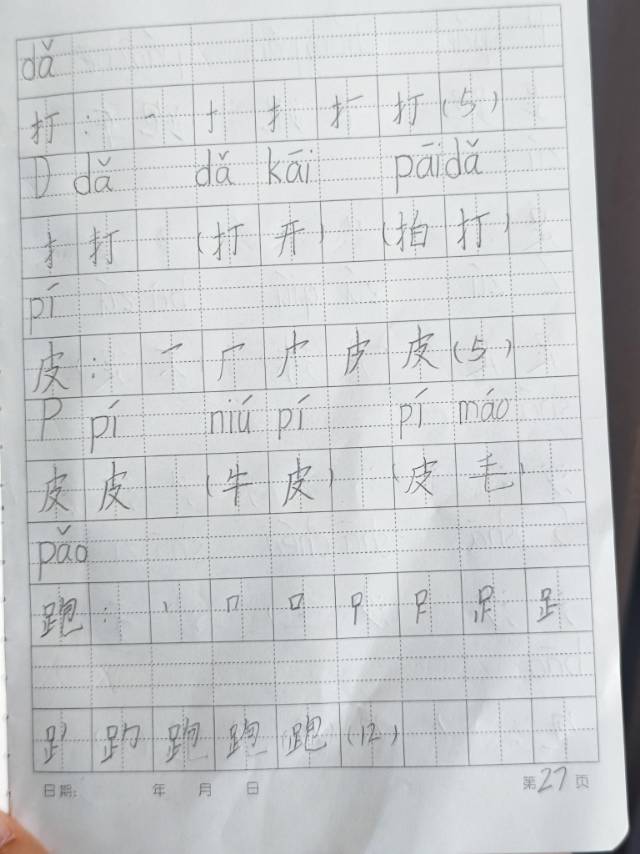 dǎ
打：一 亅 扌 扩 打（5）
D dǎ dǎ kāi pāi dǎ
扌 打 （打 开） （拍 打）
pí
皮： 皮（5）
P pí niú pí pí máo
皮 皮 （牛 皮） （皮 毛）
pǎo
跑：丨 口
跑（12）
日期： 年 月 日 第27页